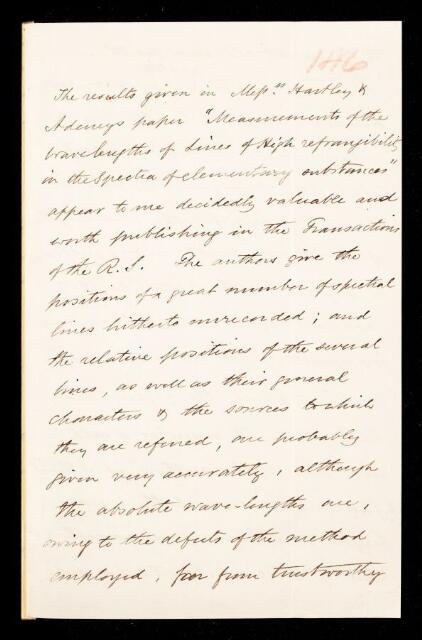 146
The results given in Messrs. Hartley &
Adeneys paper "Measurements of the
wave lengths of Lines of High refrangibility
in the Spectra of elementary substances"
appear to me decidedly valuable and
worth publishing in the Transactions
of the R.S. The authors give the
positions of a great number of spectral
lines hitherto unrecorded; and
the relative positions of the several
lines, as well as their general
characters & the sources to which
they are referred, are probably
given very accurately, although
the absolute wave-lengths are,
owing to the defects of the method
employed, far from trustworthy